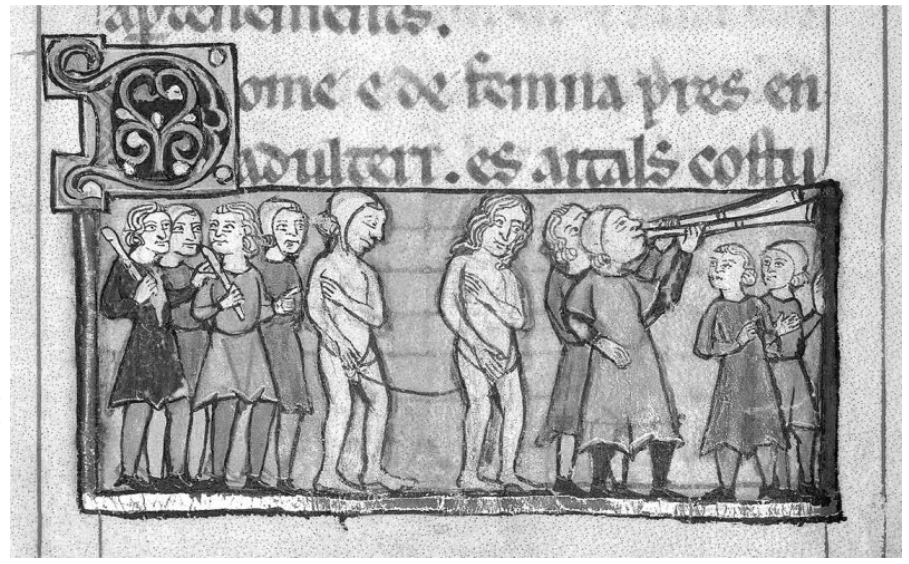 aꝑtenements.
Dome e de femna pres en
adulteri. es aitals costu